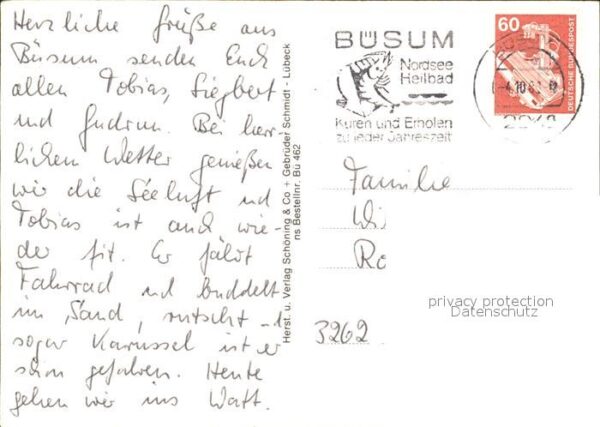 Herzliche Grüße aus
Büsum senden Euch
allen Tobias, Siegbert
und Gudrun. Bei herr-
lichen Wetter genießen
wir die Seeluft und
Tobias ist auch wie-
der fit. Er fährt
Fahrrad und buddelt
im Sand, rutscht u
sogar Karussel ist er
schon gefahren. Heute
gehen wir ins Watt.
Herst. u. Verlag Schöning & Co + Gebrüder Schmidt - Lübeck
ns Bestellnr. Bü 462
BÜSUM
Nordsee
Heilbad
Kuren und Erholen
zu jeder Jahreszeit
60
DEUTSCHE BUNDESPOST
Familie
Wi
Ro
3262
privacy protection
Datenschutz